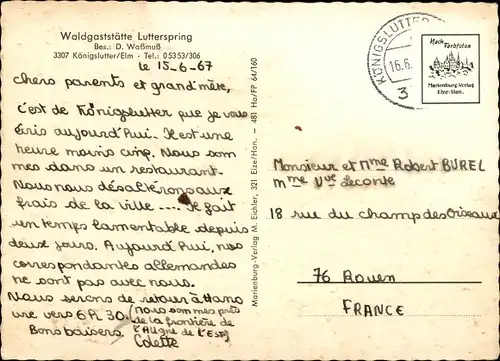 Waldgaststätte Lutterspring
Bes.: D. Waßmuß
3307 Königslutter/Elm - Tel.: 05353/306
le 15-6-67
chers parents et grand'mère,
c'est de Königslutter que je vous
écris aujourd'hui. Il est une
heure moins cinq. Nous som
mes dans un restaurant.
Nous nous désaltérons aux
frais de la ville .... Il fait
un temps lamentable depuis
deux jours. Aujourd'hui, nos
correspondantes allemandes
ne sont pas avec nous.
Nous serons de retour à Hano
vre vers 6h 30. (nous sommes près
de la frontière de
l'Allgne de l'Est)
Bons baisers.
Colette
Marienburg-Verlag M. Eichler, 321 Elze/Han. — 481 Ho/FP 64/160
KÖNIGSLUTTER
16.6.
3
Nach
Farbfotos
Marienburg-Verlag
Elze-Han.
Monsieur et Mme Robert BUREL
Mme Vve Leconte
18 rue du champ des Oiseaux
76 Rouen
FRANCE